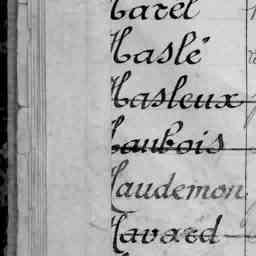 Harel
Haslé
Hasleux
Haubois
Haudemon
Havard